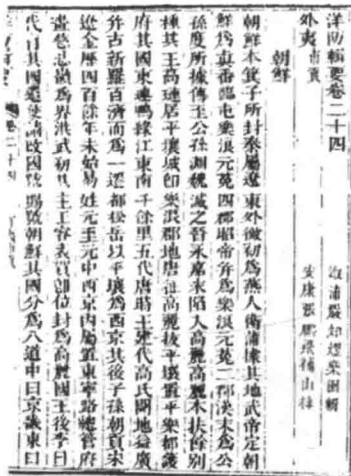 洋防輯要卷二十四
外夷 市貢
朝鮮
朝鮮本箕子所封秦屬遼東外徼初為燕人衛滿據其地武帝定朝
鮮為真番臨屯樂浪元菟四郡昭帝并為樂浪元菟二郡漢末為公
孫度所據傳至公孫淵魏滅之晉永嘉末陷入高麗高麗本扶餘別
種其王高璉居平壤城即樂浪郡地唐征高麗拔平壤置平安都護
府其國東遷鴨綠江東南千餘里五代唐時王建代高氏闢地益廣
并古新羅百濟而為一遷都松岳以平壤為西京其後子孫朝貢宋
遼金歷四百餘年未始易姓元至元中西京內屬置東寧路總管府
盡慈悲嶺為界洪武初其主王表賀即位封為高麗國王後李
代有其國遣使請改國號賜號朝鮮其國分為八道中曰京畿東曰